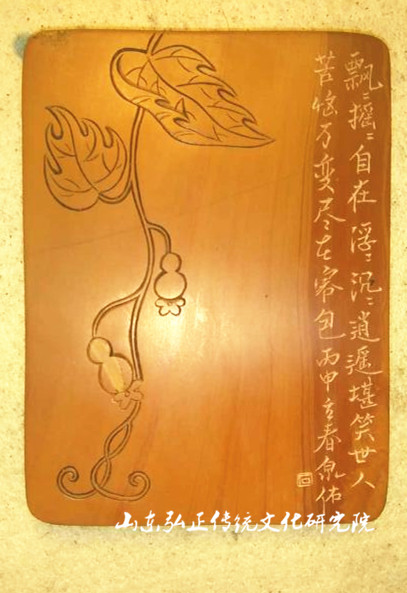 飘〻摇〻自在浮〻沉〻逍遥堪笑世人
苦恼万变尽在容包丙申立春泉佑
山东弘正传统文化研究院